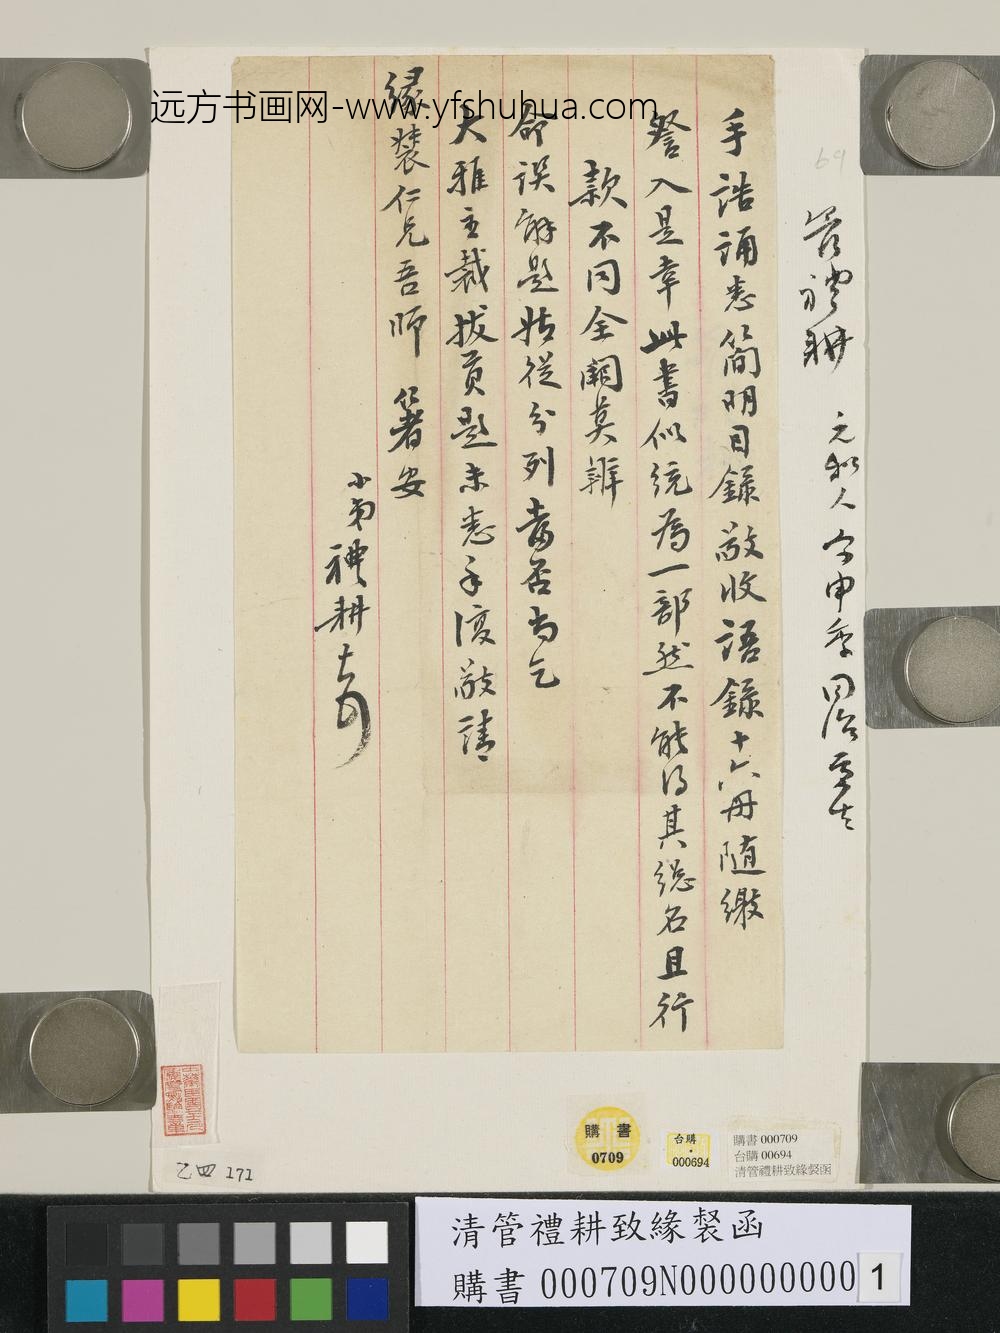 远方书画网-www.yfshuhua.com
69
管禮耕 元和人字申季同治貢生
手誥誦悉簡明目錄敬收語錄十六冊隨繳
詧入是幸此書似統為一部然不能得其總名且行
款不同全闕莫辨
命誤解題姑從分列當否尚乞
大雅主裁拔頁題未悉手復敬請
緣裻仁兄吾師 箸安
小弟禮耕
購書
0709
台購
000694
購書 000709
台購 00694
清管禮耕致緣裻函
乙四 171
清管禮耕致緣裻函
購書 000709N000000000 1